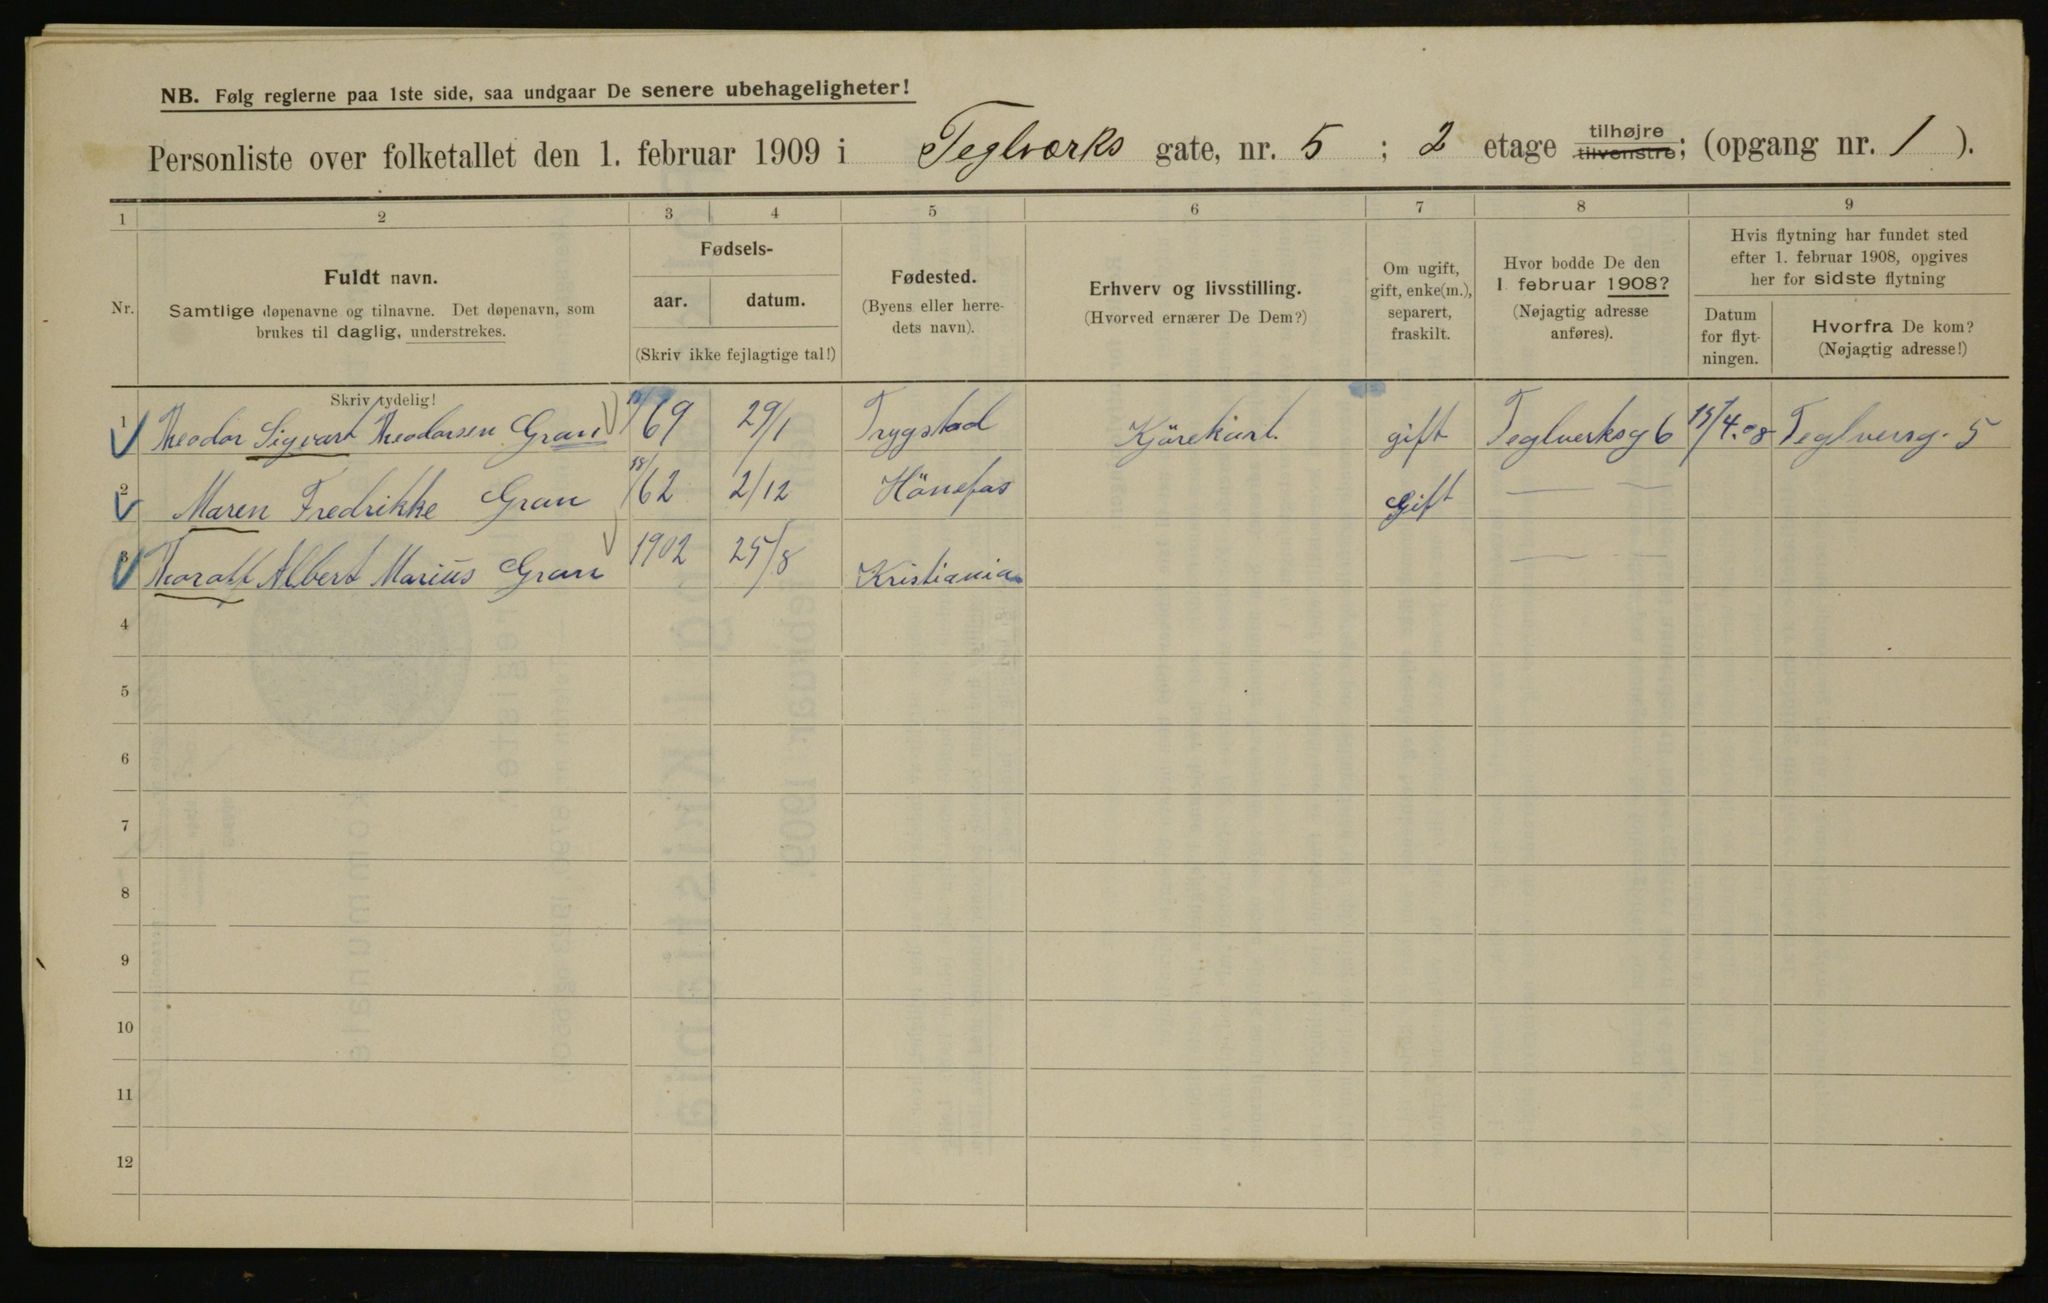 NB. Følg reglerne paa 1ste side, saa undgaar De senere ubehageligheter!
Personliste over folketallet den 1. februar 1909 i Teglværks gate, nr. 5 ; 2 etage tilhøjre tilvenstre; (opgang nr. 1 ).
1 2 3 4 5 6 7 8 9
Nr.
Fuldt navn.
Samtlige døpenavne og tilnavne. Det døpenavn, som
brukes til daglig, understrekes.
Fødsels-
aar. datum.
(Skriv ikke fejlagtige tal!)
Fødested.
(Byens eller herre-
dets navn).
Erhverv og livsstilling.
(Hvorved ernærer De Dem?)
Om ugift,
gift, enke(m.),
separert,
fraskilt.
Hvor bodde De den
1. februar 1908?
(Nøjagtig adresse
anføres).
Hvis flytning har fundet sted
efter 1. februar 1908, opgives
her for sidste flytning
Datum
for flyt-
ningen.
Hvorfra De kom?
(Nøjagtig adresse!)
Skriv tydelig!
1 Theodor Sigvart Theodorsen Gran 18/69 29/1 Trygstad Kjørekarl. gift Teglverksg 6 15/4.08 Teglversg. 5
2 Maren Fredrikke Gran 18/62 2/12 Hönefos Gift — — —
3 Albert Marius Gran 1902 25/8 Kristiania — — —
4
5
6
7
8
9
10
11
12